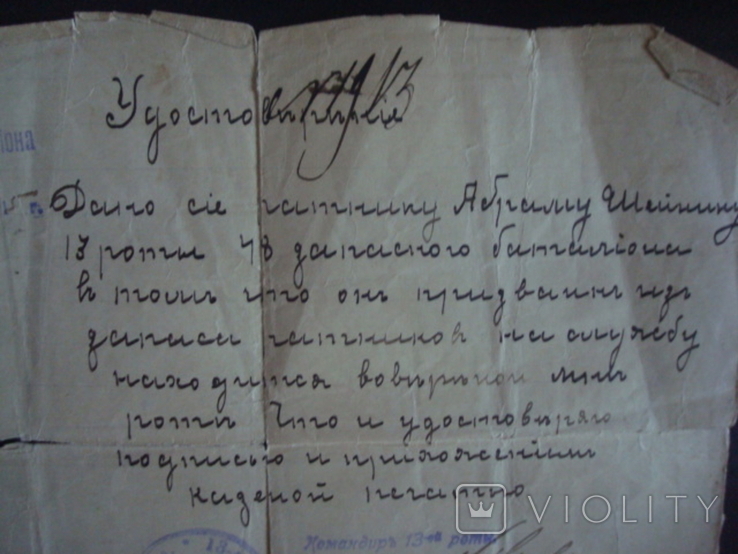 Удостовѣреніе
№ 13
іона
5 г.
Дано сіе ратнику Абраму Шейнину
13 роты 48 запаснаго баталіона
въ томъ что онъ призванъ изъ
запаса ратниковъ на службу
находится во ввѣренной мнѣ
ротѣ Что и удостовѣряю
подписью и приложеніемъ
казеной печатью
Командиръ 13-ой роты
VIOLITY